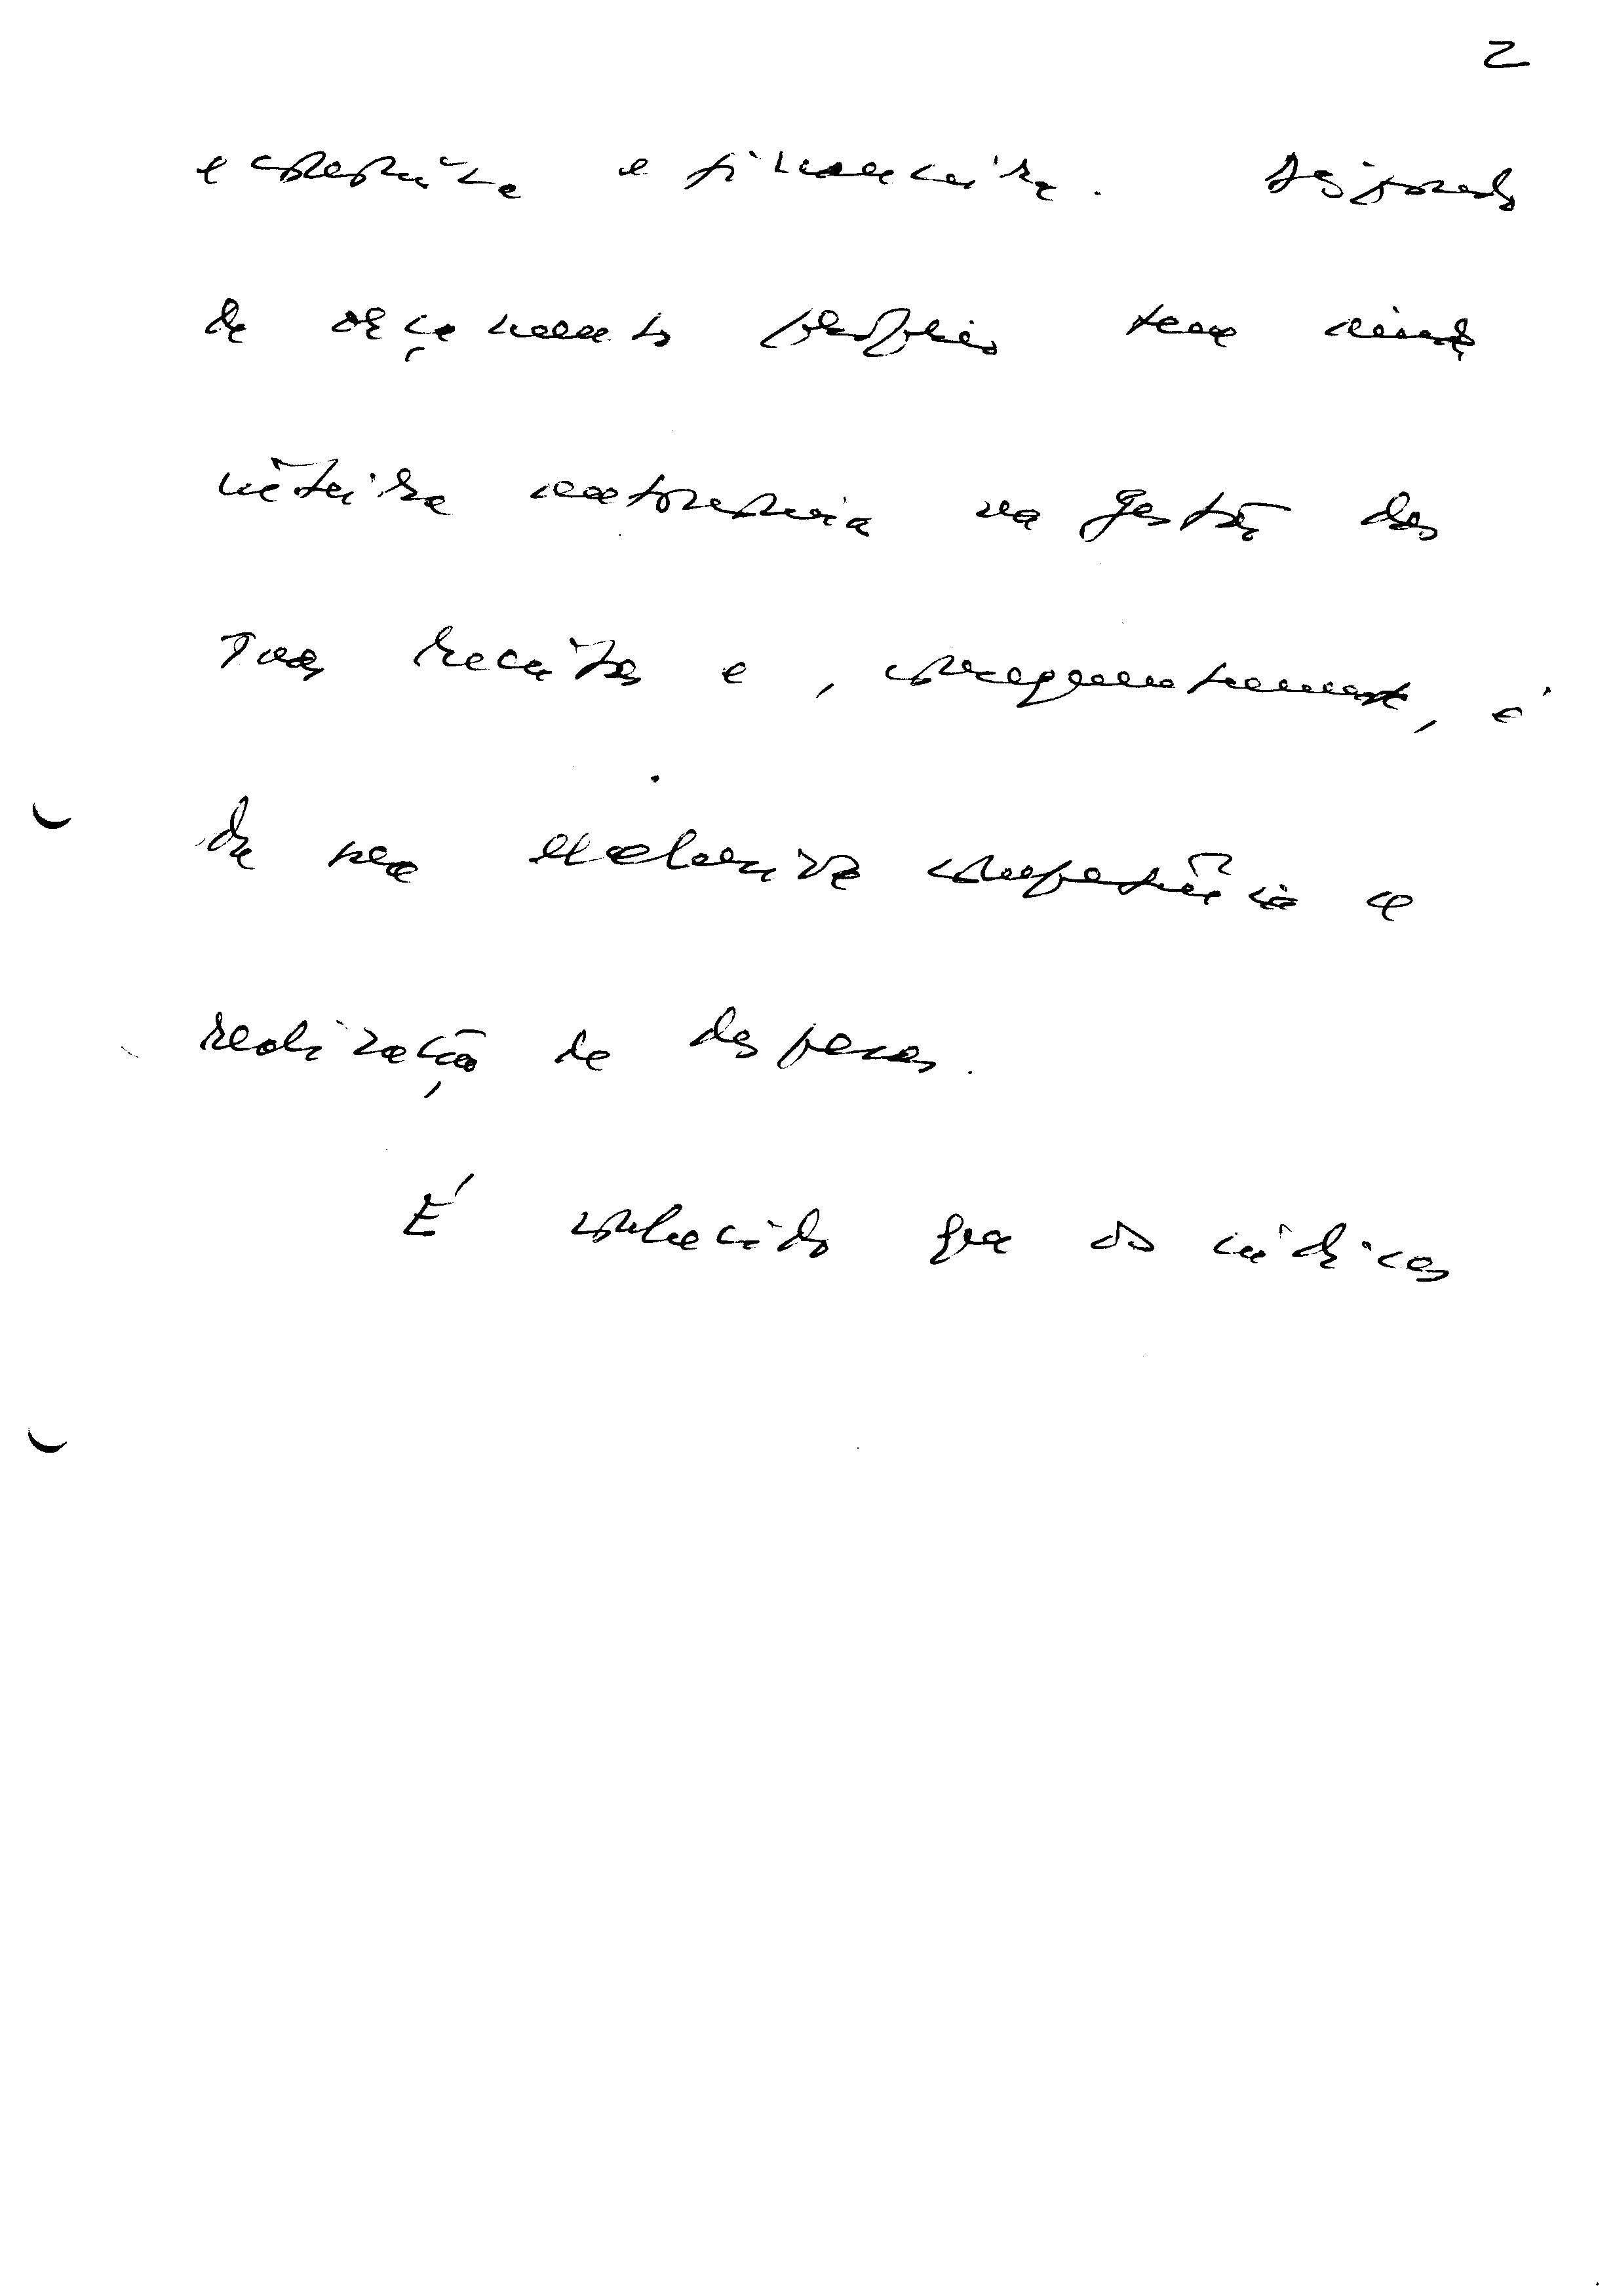 2
económica e financeira. Dispondo
de orçamento próprio tem ainda
inteira autonomia na gestão das
suas receitas e, consequentemente, é
da sua exclusiva competência a
realização de despesas.
É conhecido que os índices